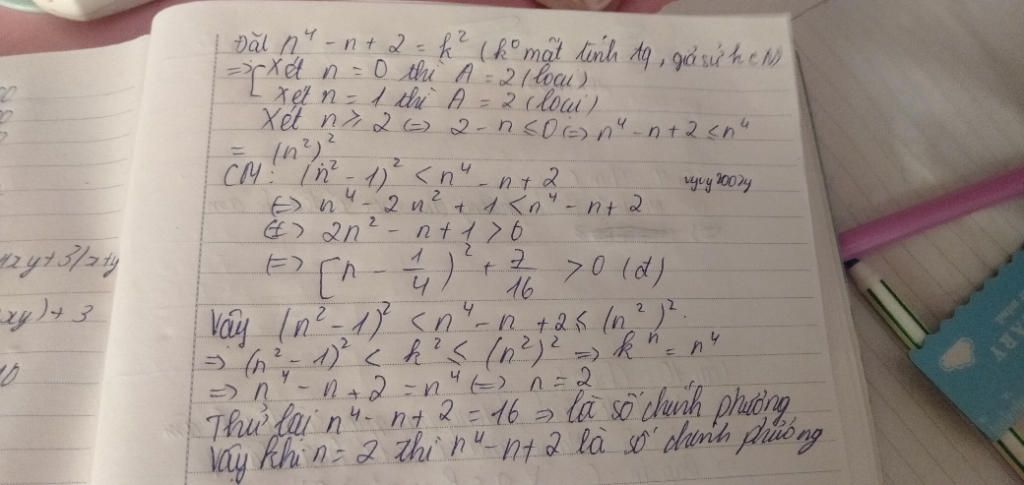 Đặt n⁴ - n + 2 = k² (k⁰ mất tính tq, giả sử k ∈ N)
=> [ Xét n = 0 thì A = 2 (loại)
Xét n = 1 thì A = 2 (loại)
Xét n ≥ 2 <=> 2 - n ≤ 0 <=> n⁴ - n + 2 ≤ n⁴
= (n²)²
CM: (n² - 1)² < n⁴ - n + 2
vyvy2002y
<=> n⁴ - 2n² + 1 < n⁴ - n + 2
<=> 2n² - n + 1 > 0
<=> [n - 1/4)² + 7/16 > 0 (đ)
Vậy (n² - 1)² < n⁴ - n + 2 ≤ (n²)².
=> (n² - 1)² < k² ≤ (n²)² => kⁿ = n⁴
=> n⁴ - n + 2 = n⁴ <=> n = 2
Thử lại n⁴ - n + 2 = 16 => là số chính phương
Vậy khi n = 2 thì n⁴ - n + 2 là số chính phương
xy + 3
xy) + 3